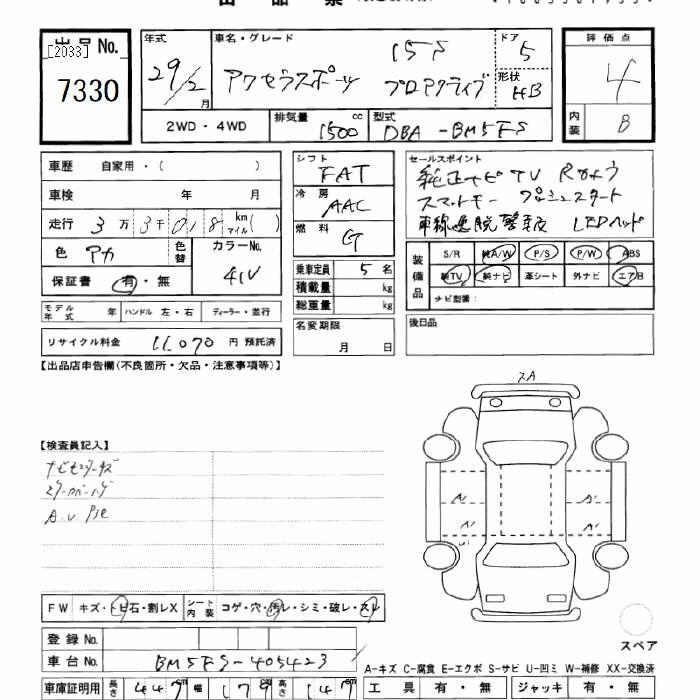 出品票
[2033]
出品No. 7330
年式 29/2 月
車名・グレード 15S
アクセラスポーツ プロアクティブ
ドア 5
形状 HB
評価点 4
内装 B
2WD・4WD
排気量 1500 cc
型式 DBA-BM5FS
車歴 自家用・( )
車検 年 月
走行 3万3千018 km マイル( )
色 アカ 色替 カラーNo. 41V
保証書 有・無
モデル年式 年 ハンドル 左・右 ディーラー・並行
リサイクル料金 11,070 円 預託済
シフト FAT
冷房 AAC
燃料 G
乗車定員 5 名
積載量 kg
総重量 kg
名変期限 月 日
セールスポイント
純正ナビTV Rカメラ
スマートキー プッシュスタート
車線逸脱警報 LEDヘッド
装備品 S/R 純A/W P/S P/W ABS
純TV 純ナビ 革シート 外ナビ エアB
ナビ型番:
後日品
【出品店申告欄(不良箇所・欠品・注意事項等)】
スA
【検査員記入】
A' A'
A' A'
FW キズ・トビ石・割レX シート内装 コゲ・穴・汚レ・シミ・破レ・スレ
登録No.
車台No. BM5FS-405423
スペア
A-キズ C-腐食 E-エクボ S-サビ U-凹ミ W-補修 XX-交換済
車庫証明用 長さ 447cm 幅 179cm 高さ 147cm
工具 有・無 ジャッキ 有・無